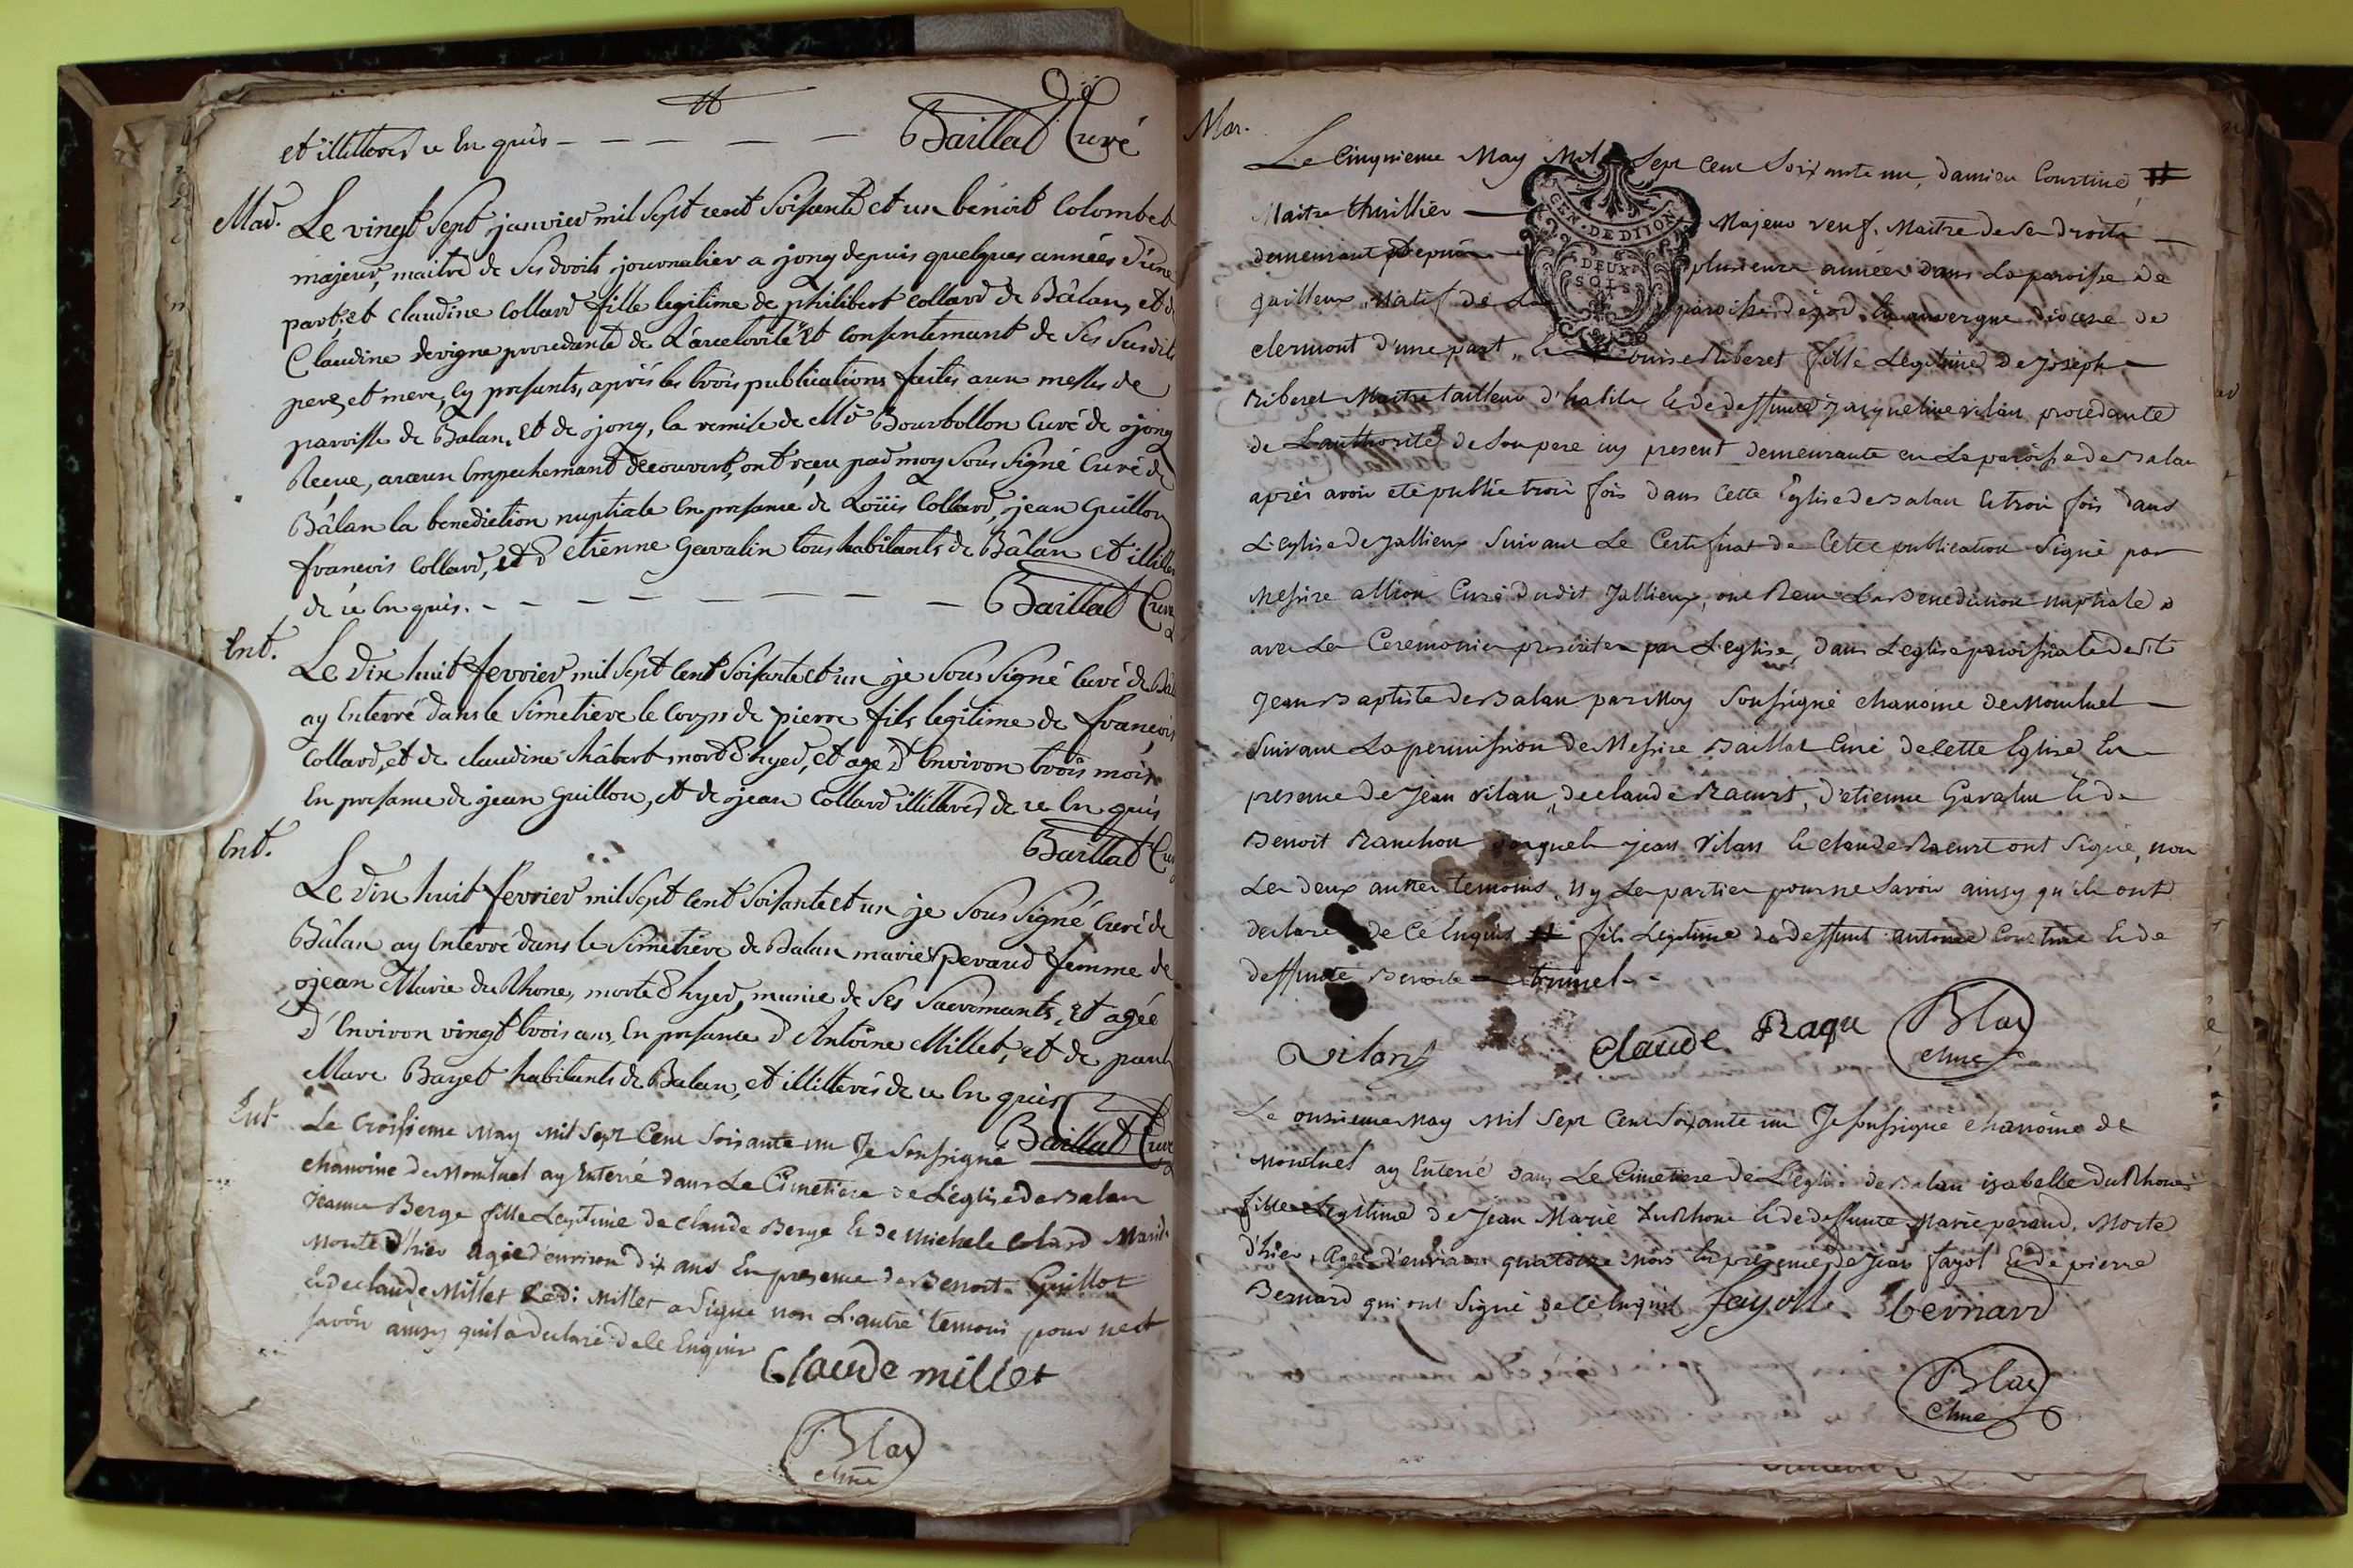 et illitteres de ce En quis — — — — — Baillat Curé
Mar. Le vingt Sept janvier mil Sept cent Soisante et un benoit Colombet
majeur, maitre de Ses droits journalier a jong depuis quelques années d'une
part, et Claudine Collard fille legitime de philibert Collard de Bâlan, et de
Claudine devigne procedante de L'arctorité et Consentemant de Ses Susdits
pere et mere, Cy presants, après les trois publications faites aux messes de
paroisse de Balan, et de jong, la remise de Mr Bourbollon Curé de jong
Reçue, aucun Empechemant decouvert, ont reçu par moy Sous Signé Curé de
Bâlan la benediction nuptiale En presance de Loüis Collard, jean Guillon
francois Collard, et d'etienne Gavalin tous habitants de Bâlan et illitter
de ce En quis. — — — — — — — — Baillat Curé
Ent. Le Dix huit fevrier mil Sept Cent Soisante et un je Sous Signé Curé de
ay Enterré dans le Simetiere le Corps de pierre fils legitime de francois
Collard, et de claudine Châbert mort d'hyer, et agé d'Environ trois mois
En presance de jean Guillon, et de jean Collard illitteres de ce En quis
Baillat Curé
Ent. Le Dix huit fevrier mil Sept Cent Soisante et un je Sous Signé Curé de
Bâlan ay Enterré dans le Simetiere de Balan marie Peraud femme de
jean Marie du Rhone, morte d'hyer, munie de Ses Sacremants, et agée
d'Environ vingt trois ans, En presance d'Antoine Millet, et de paul
Marc Bayet habitants de Balan, et illitterés de ce En quis
Baillat Curé
Ent Le troisieme May Mil Sept Cent Soixante un Je Soussigné
chanoine de Montluel ay Enterré dans Le Cimetiere de L'église de Balan
Jeanne Berge fille Legitime de Claude Berge & de Michele Colard
Morte d'hier agée d'environ dix ans En presence de Benoit Guillot
& de claude Millet Ledi Millet a Signé non L'autre temoin pour ne
savoir ainsy quil a declaré de ce Enquis
Claude millet
Blas
chne
Mar. Le Cinquieme May Mil Sept Cent Soixante un, damien Courtine #
Maitre thuillier — Majeur veuf, Maitre de Ses droits —
demeurant depuis plusieurs années dans La paroisse de
Jailleux, Natif de La paroisse En auvergne diocese de
clermont d'une part, & Riberet fille Legitime de Joseph —
Riberet Maitre tailleur d'habits & de deffunte Jacqueline vilan procedante
de L'authorité de Son pere icy present demeurante en La paroisse de Balan
après avoir eté publié trois fois dans Cette Eglise de Balan & trois fois dans
L'eglise de Jallieux Suivant Le Certificat de Cette publication Signé par
Messire allion Curé dudit Jallieux, ont Reçu La Benediction nuptiale
avec Les Ceremonies prescrites par L'eglise, dans L'eglise paroissiale de St
Jean Baptiste de Balan par Moy Soussigné chanoine de Montluel —
Suivant La permission de Messire Baillat Curé de Cette Eglise En
presence de Jean vilan, de claude Racurt, d'etienne Gavalin & de
Benoit Ranchon desquels Jean Vilan & claude Racurt ont Signé, non
Les deux autres temoins, Ny Les parties pour ne Savoir ainsy qu'ils ont
declaré de Ce Enquis # fils Legitime de deffunt antoine Courtine & de
deffunte Benoite —
Vilan Claude Raqu Blas
chne
Le onzieme May Mil Sept Cent Soixante un Je soussigné chanoine de
Montluel ay Enterré dans Le Cimetiere de L'eglise de Balan isabelle Du Rhone
fille Legitime de Jean Marie Du Rhone & de deffunte Marie peraud, Morte
d'hier, Agée d'environ quatorze Mois En presence de Jean fayol & de pierre
Bernard qui ont Signé de Ce Enquis fayolle bernard
Blas
chne
GEN. DE DIJON
DEUX SOLS